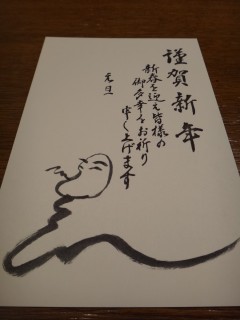 謹賀新年
新春を迎え皆様の
御多幸をお祈り
申し上げます
元旦